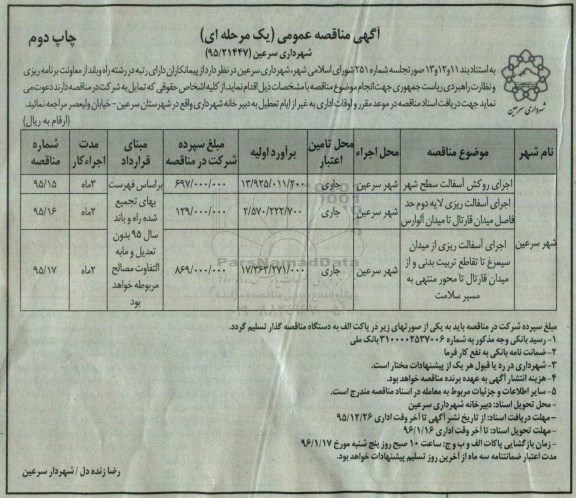 آگهی مناقصه عمومی (یک مرحله ای)
چاپ دوم
شهرداری سرعین (۹۵/۲۱۴۴۷)
شهرداری سرعین
به استناد بند ۱۱و۱۲و۱۳ صورتجلسه شماره ۲۵۱ شورای اسلامی شهر، شهرداری سرعین در نظر دارد از پیمانکاران دارای رتبه در رشته راه و باند از معاونت برنامه ریزی
و نظارت راهبردی ریاست جمهوری جهت انجام موضوع مناقصه با مشخصات ذیل اقدام نماید. از کلیه اشخاص حقوقی که تمایل به شرکت در مناقصه دارند دعوت می
نماید جهت دریافت اسناد مناقصه در موعد مقرر و اوقات اداری به غیر از ایام تعطیل به دبیر خانه شهرداری واقع در شهرستان سرعین- خیابان ولیعصر مراجعه نمائید.
(ارقام به ریال)
نام شهر | موضوع مناقصه | محل اجراء | محل تامین اعتبار | برآورد اولیه | مبلغ سپرده شرکت در مناقصه | مبنای قرارداد | مدت اجراء کار | شماره مناقصه
شهر سرعین | اجرای روکش آسفالت سطح شهر | شهر سرعین | جاری | ۱۳/۹۲۵/۰۱۱/۲۰۰ | ۶۹۷/۰۰۰/۰۰۰ | براساس فهرست بهای تجمیع شده راه و باند سال ۹۵ بدون تعدیل و مابه التفاوت مصالح مربوطه خواهد بود | ۳ماه | ۹۵/۱۵
اجرای آسفالت ریزی لایه دوم حد فاصل میدان قارتال تا میدان آلوارس | شهر سرعین | جاری | ۲/۵۷۰/۲۲۲/۷۰۰ | ۱۲۹/۰۰۰/۰۰۰ | ۲ماه | ۹۵/۱۶
اجرای آسفالت ریزی از میدان سیمرغ تا تقاطع تربیت بدنی و از میدان قارتال تا محور منتهی به مسیر سلامت | شهر سرعین | جاری | ۱۷/۳۶۳/۲۷۱/۰۰۰ | ۸۶۹/۰۰۰/۰۰۰ | ۲ماه | ۹۵/۱۷
ParsNamadData
مبلغ سپرده شرکت در مناقصه باید به یکی از صورتهای زیر در پاکت الف به دستگاه مناقصه گذار تسلیم گردد.
۱- رسید بانکی وجه مذکور به شماره ۳۱۰۰۰۰۲۵۳۷۰۰۶ بانک ملی
۲- ضمانت نامه بانکی به نفع کار فرما
۳- شهرداری در رد یا قبول هر یک از پیشنهادات مختار است.
۴- هزینه انتشار آگهی به عهده برنده مناقصه خواهد بود.
۵- سایر اطلاعات و جزئیات مربوط به معامله در اسناد مناقصه مندرج است.
- محل تحویل اسناد: دبیرخانه شهرداری سرعین
- مهلت دریافت اسناد: از تاریخ نشر آگهی تا آخر وقت اداری ۹۵/۱۲/۲۶
- مهلت تحویل اسناد: تا آخر وقت اداری ۹۶/۱/۱۶
- زمان بازگشایی پاکات الف و ب و ج: ساعت ۱۰ صبح روز پنج شنبه مورخ ۹۶/۱/۱۷
مدت اعتبار ضمانتنامه سه ماه از آخرین روز تسلیم پیشنهادات خواهد بود.
رضا زنده دل / شهردار سرعین